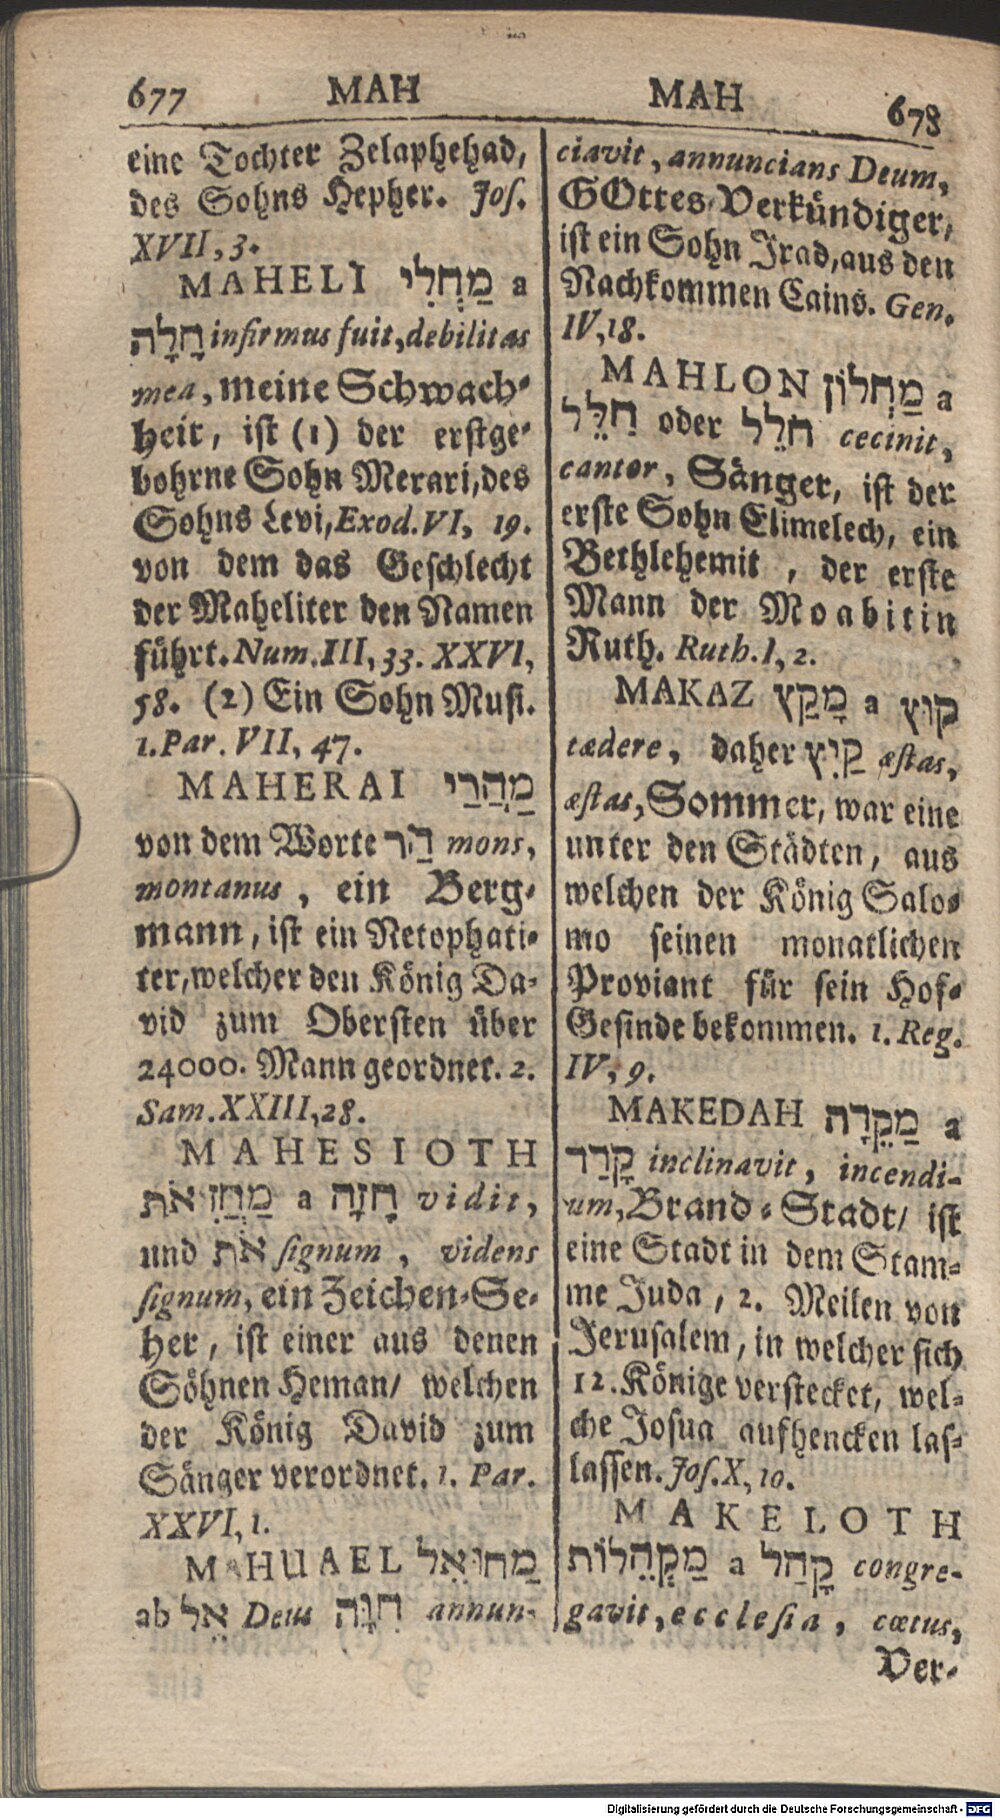 677 MAH
eine Tochter Zelaphehad,
des Sohns Hepher. Jos.
XVII, 3.
MAHELI מַחְלִי a
חָלָה infirmus fuit, debilitas
mea, meine Schwach-
heit, ist (1) der erstge-
bohrne Sohn Merari, des
Sohns Levi, Exod. VI, 19.
von dem das Geschlecht
der Maheliter den Namen
führt. Num. III, 33. XXVI,
58. (2) Ein Sohn Musi.
1. Par. VII, 47.
MAHERAI מַהֲרַי
von dem Worte הַר mons,
montanus, ein Berg-
mann, ist ein Netophati-
ter, welcher den König Da-
vid zum Obersten über
24000. Mann geordnet. 2.
Sam. XXIII, 28.
MAHESIOTH
מַחֲזִיאֹת a חָזָה vidit,
und אֹת signum, videns
signum, ein Zeichen-Se-
her, ist einer aus denen
Söhnen Heman/ welchen
der König David zum
Sänger verordnet. 1. Par.
XXVI, 1.
MAHUAEL מַחוּיאֵל
ab אֵל Deus חִוָּה annun-
MAH 678
ciavit, annuncians Deum,
GOttes-Verkündiger,
ist ein Sohn Irad, aus den
Nachkommen Cains. Gen.
IV, 18.
MAHLON מַחְלוֹן a
חִלֵּל oder חלֵל cecinit,
cantor, Sänger, ist der
erste Sohn Elimelech, ein
Bethlehemit, der erste
Mann der Moabitin
Ruth. Ruth. I, 2.
MAKAZ מָקַץ a קוּץ
tædere, daher קַיִץ æstas,
æstas, Sommer, war eine
unter den Städten, aus
welchen der König Salo-
mo seinen monatlichen
Proviant für sein Hof-
Gesinde bekommen. 1. Reg.
IV, 9.
MAKEDAH מַקֵּדָה a
קָדַד inclinavit, incendi-
um, Brand-Stadt/ ist
eine Stadt in dem Stam-
me Juda, 2. Meilen von
Jerusalem, in welcher sich
12. Könige verstecket, wel-
che Josua aufhencken las-
lassen. Jos. X, 10.
MAKELOTH
מַקְהֵלוֹת a קָהַל congre-
gavit, ecclesia, cœtus,
Ver-
Digitalisierung gefördert durch die Deutsche Forschungsgemeinschaft - DFG